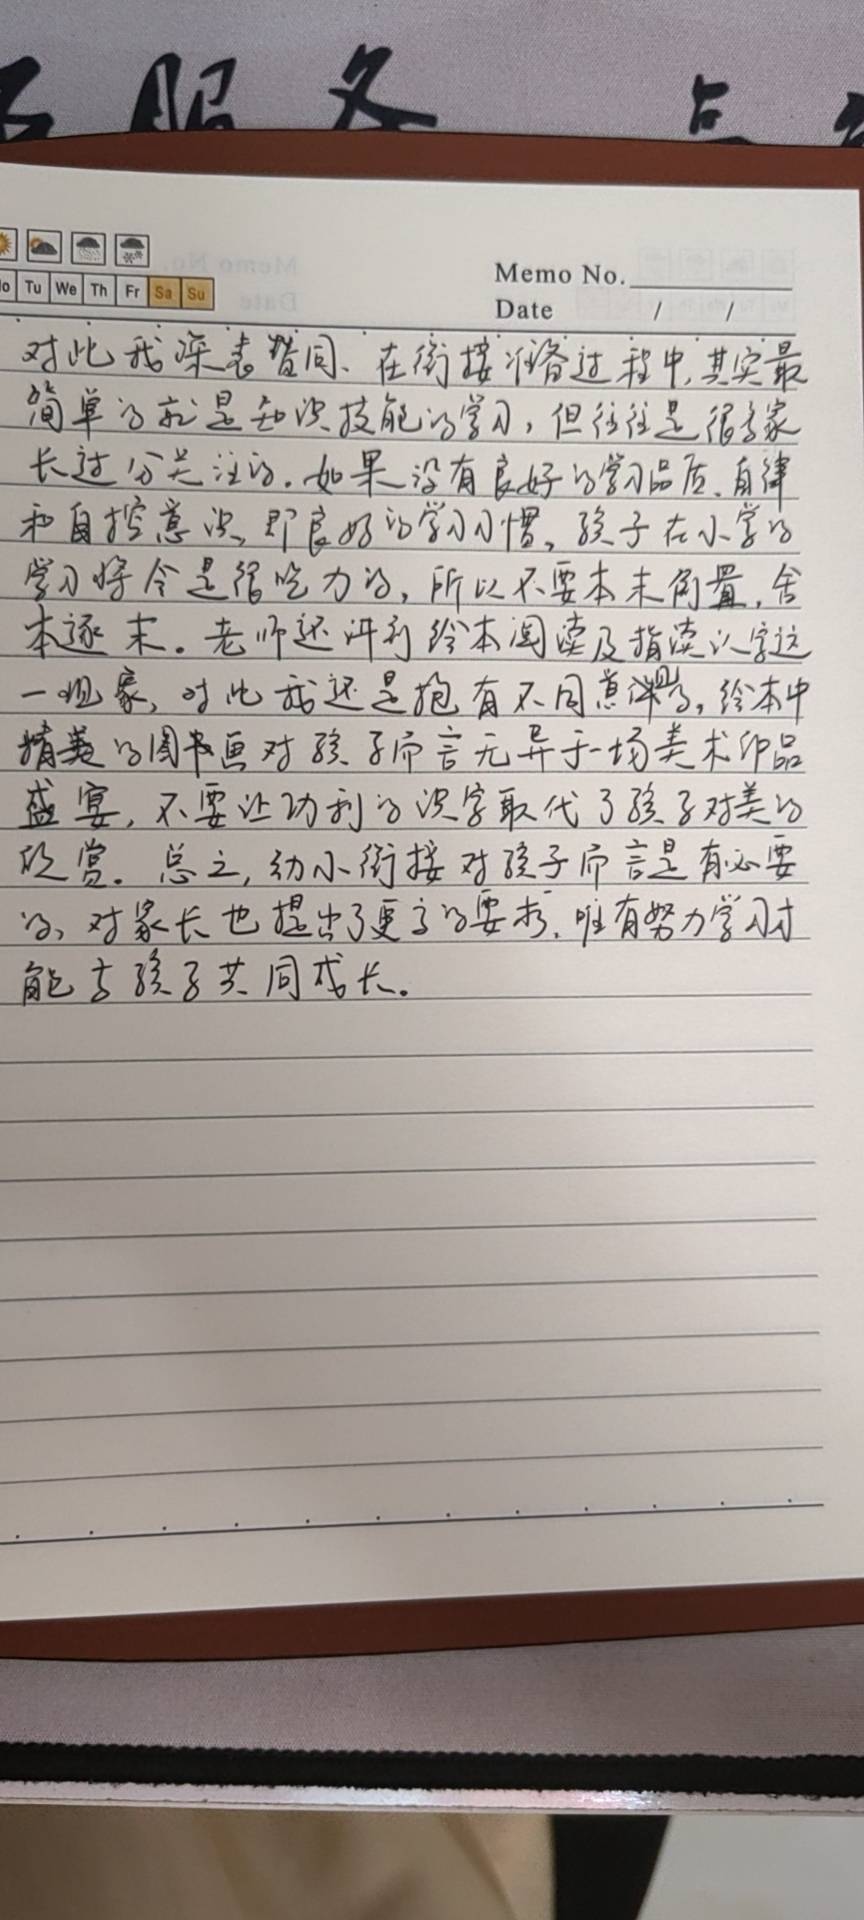 服务
Memo No.
Mo Tu We Th Fr Sa Su
Date / /
对此我深表赞同、在衔接准备过程中,其实最
简单的就是知识技能的学习,但往往是很多家
长过分关注的.如果没有良好的学习品质、自律
和自控意识,即良好的学习习惯,孩子在小学的
学习将会是很吃力的,所以不要本末倒置,舍
本逐末。老师还讲到绘本阅读及指读认字这
一现象,对此我还是抱有不同意见的,绘本中
精美的图画对孩子而言无异于一场美术印品
盛宴,不要让功利的识字取代了孩子对美的
欣赏.总之,幼小衔接对孩子而言是有必要
的,对家长也提出了更高的要求,唯有努力学习才
能与孩子共同成长.